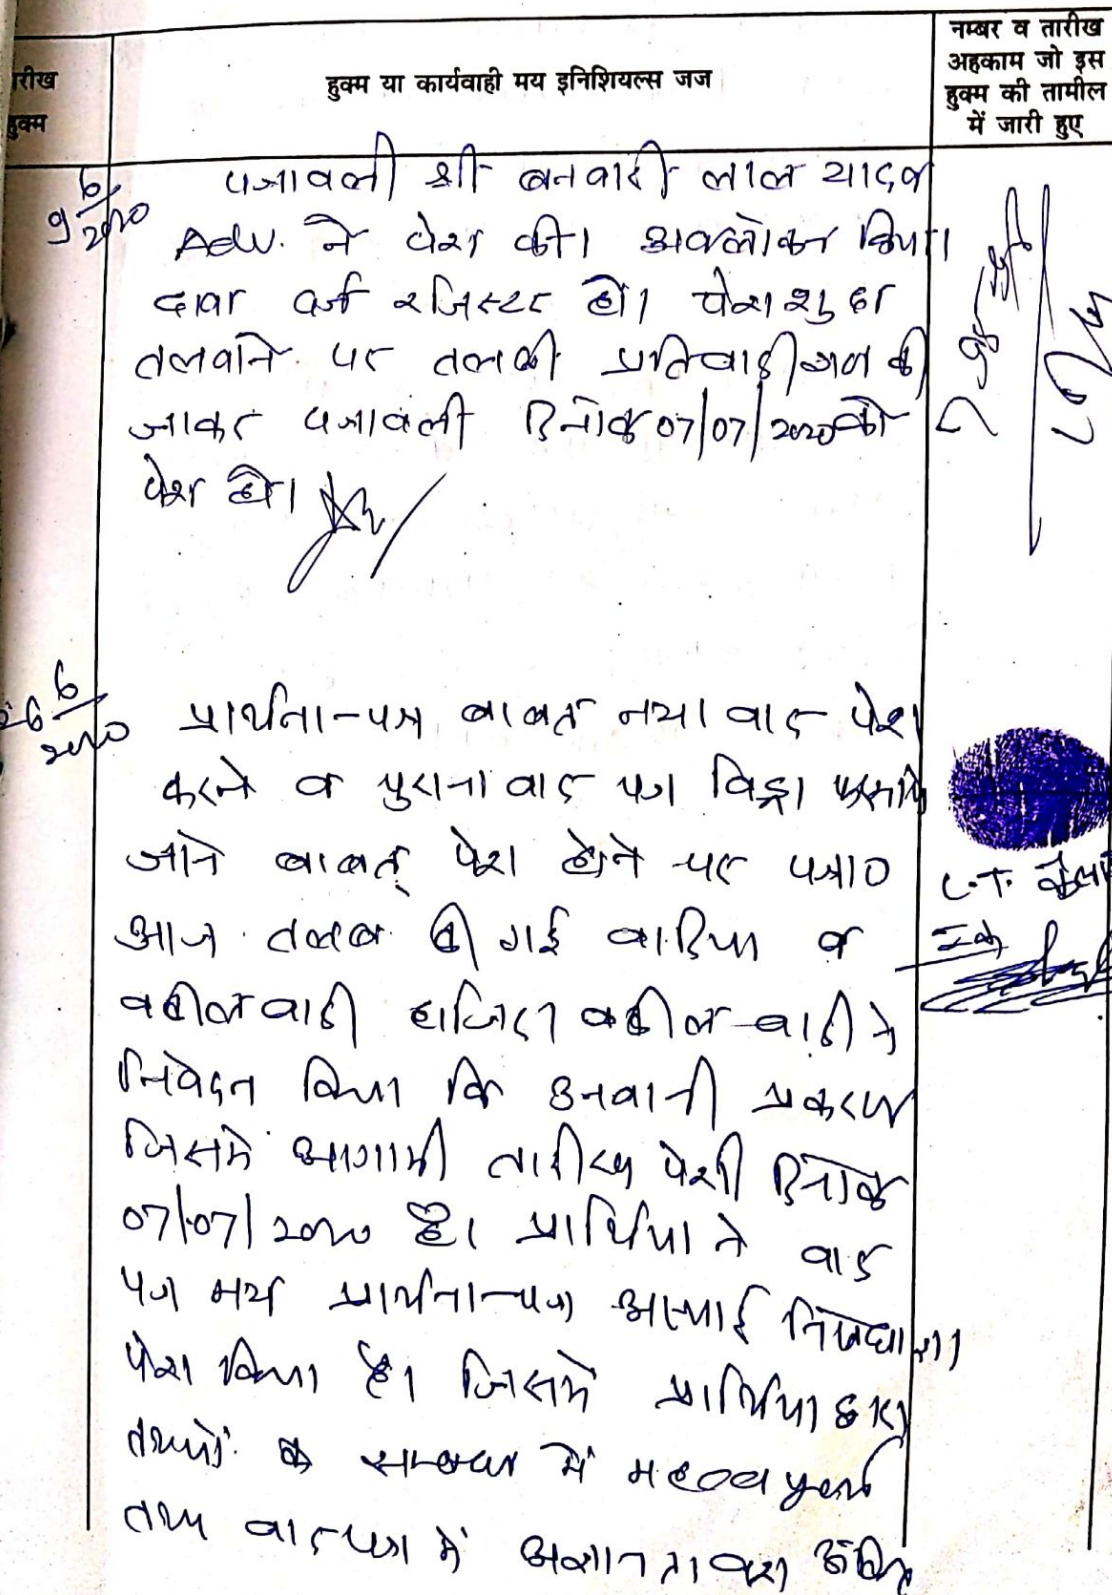 तारीख
हुक्म
हुक्म या कार्यवाही मय इनिशियल्स जज
नम्बर व तारीख
अहकाम जो इस
हुक्म की तामील
में जारी हुए
9/6/2020
पत्रावली श्री बनवारी लाल यादव
Adv. ने पेश की। अवलोकन किया।
दावा दर्ज रजिस्टर हो। पेशशुदा
तलवाने पर तलबी प्रतिवादीगण की
जाकर पत्रावली दिनांक 07/07/2020 को
पेश हो।
26/6/2020
प्रार्थना-पत्र बाबत नया वाद पेश
करने व पुराना वाद पत्र विड्रा
जाने बाबत् पेश होने पर पत्रा०
आज तलब की गई वादिया व
वकील वादी हाजिर। वकील-वादी ने
निवेदन किया कि उनवानी प्रकरण
जिसमें आगामी तारीख पेशी दिनांक
07/07/2020 है। प्रार्थिया ने वाद
पत्र मय प्रार्थना-पत्र अस्थाई निषेधाज्ञा
पेश किया है। जिसमें प्रार्थिया द्वारा
तथ्यों के सम्बन्ध में महत्वपूर्ण
तथ्य वाद पत्र में अज्ञानतावश अंकित
L.T.